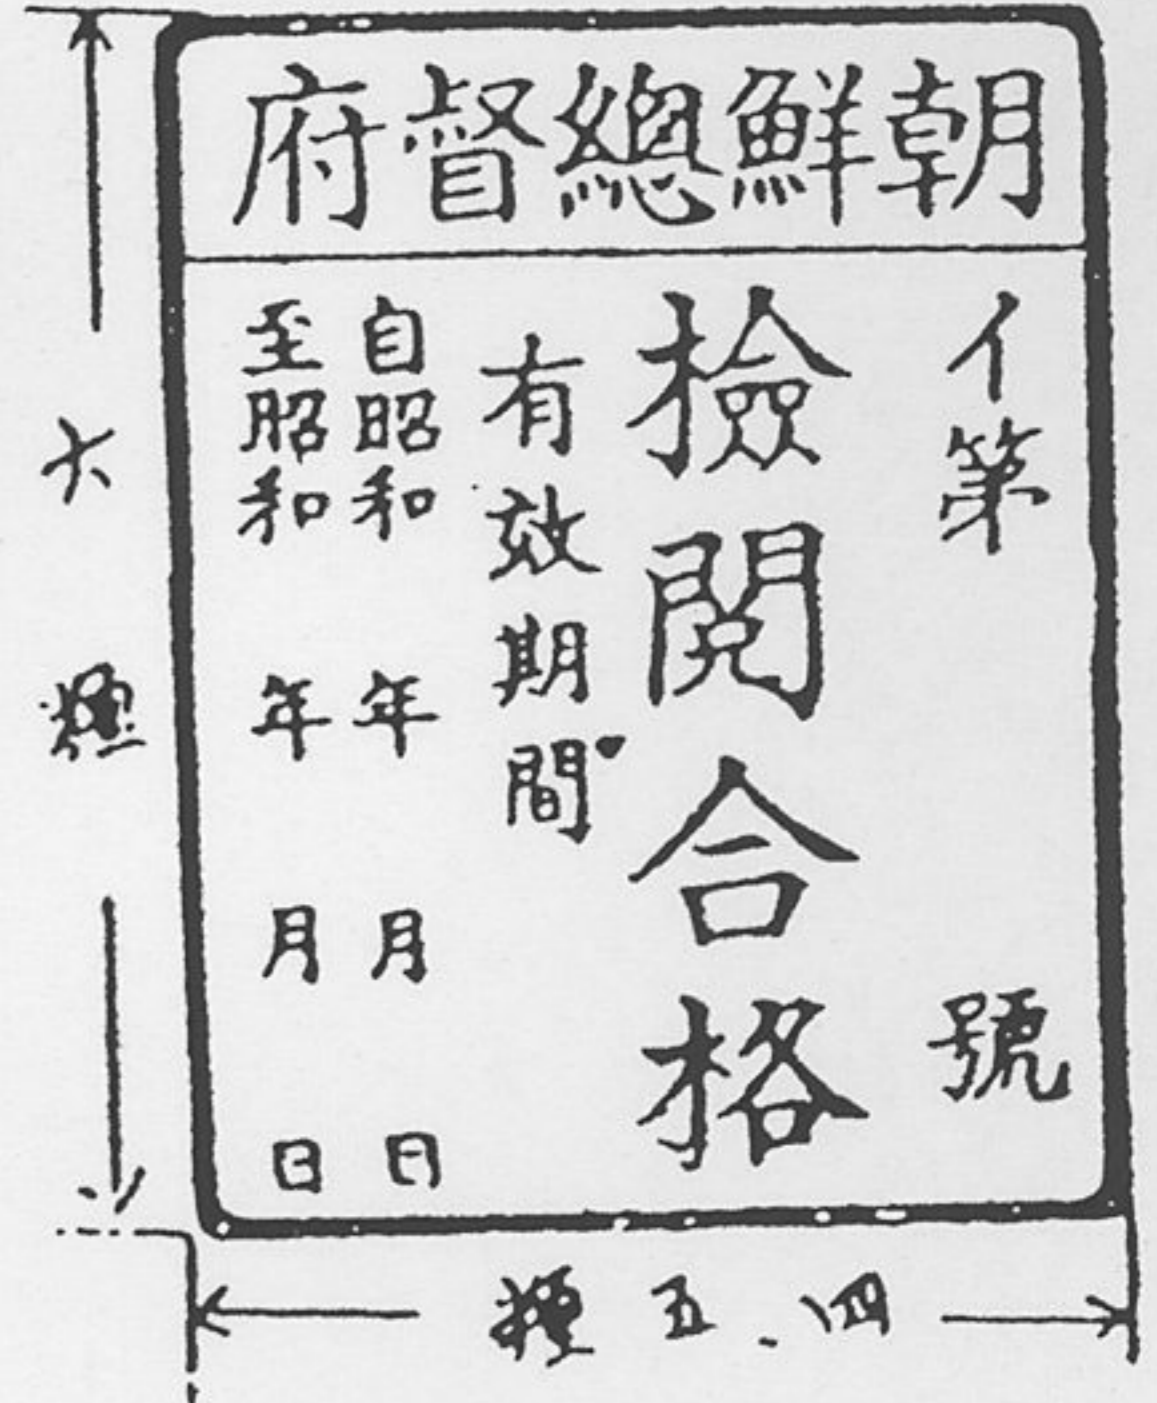 朝鮮總督府
イ第 號
檢閲合格
有效期間
自昭和 年 月 日
至昭和 年 月 日
六糎
四.五糎